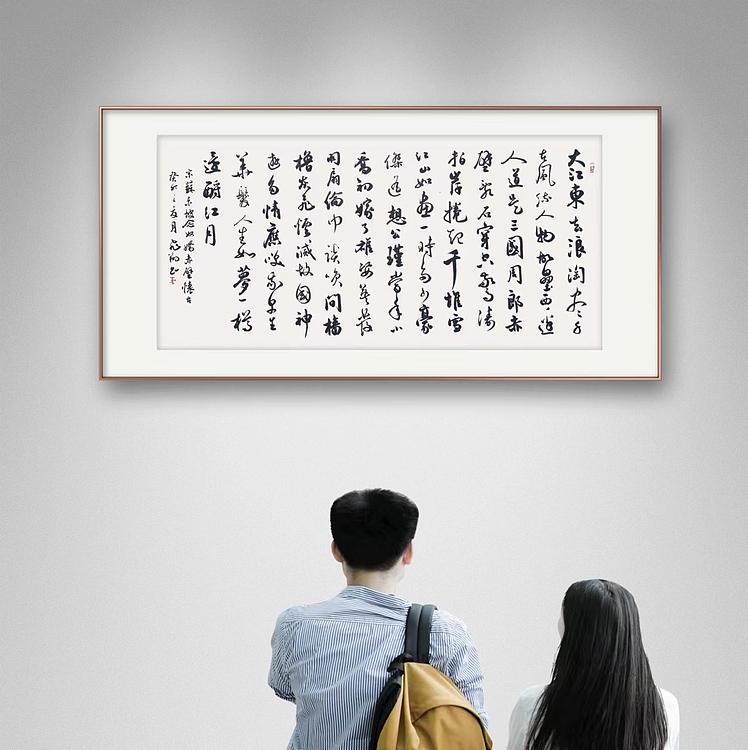 大江東去浪淘盡千
古風流人物故壘西邊
人道是三國周郎赤
壁亂石穿空驚濤
拍岸捲起千堆雪
江山如畫一時多少豪
傑遙想公瑾當年小
喬初嫁了雄姿英發
羽扇綸巾談笑間檣
櫓灰飛煙滅故國神
遊多情應笑我早生
華髮人生如夢一樽
還酹江月
宋蘇東坡念奴嬌赤壁懷古
癸卯之夏月